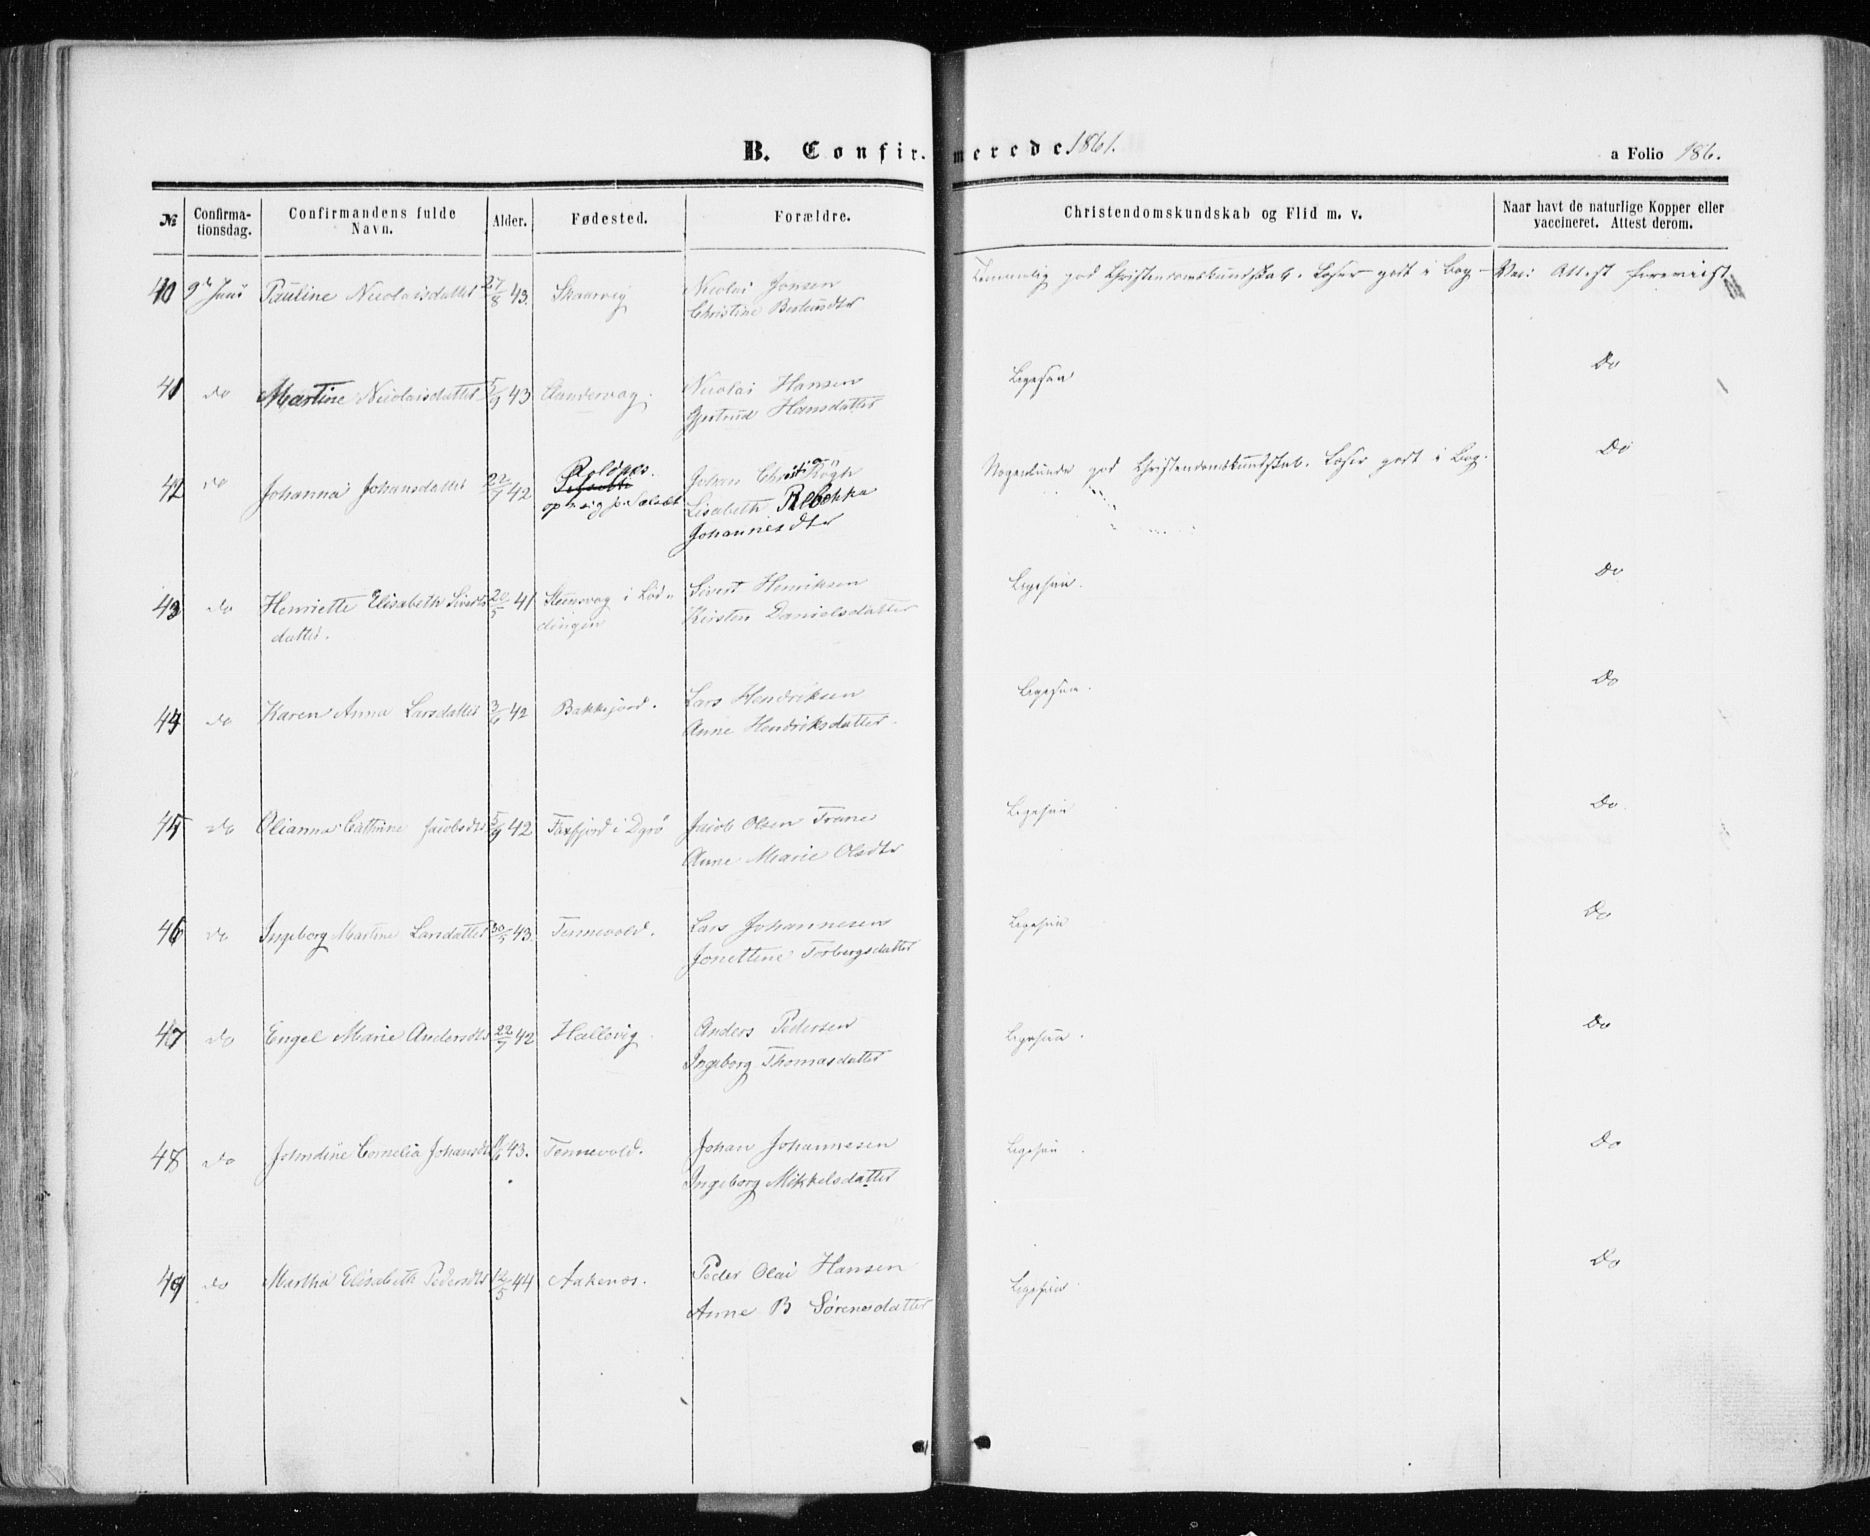 B. Confirmerede 1861.
a Folio 186.
№ Confirma-tionsdag. Confirmandens fulde Navn. Alder. Fødested. Forældre. Christendomskundskab og Flid m. v. Naar havt de naturlige Kopper eller vaccineret. Attest derom.
40 9de Juni Pauline Nicolaisdatter 27/8 43. Skaarvig Nicolai Jonsen Temmelig god Christendomskundskab. Læser godt i Bog. Vac: Attest foreviist
Christine
41 do Martine Nicolaisdatter 5/9 43 Nicolai Hansen Ligesaa Do
Gjertrud Hansdatter
42 do Johanna Johansdatter 22/7 42 Johan Nogenlunde god Christendomskundskab. Læser godt i Bog. Do
Lisabeth Rebekka
Johannesdtr
43 do Henriette Elisabeth Siverts 20/5 41 Steensvog i Lød- Sivert Henriksen Ligesaa. Do
datter. dingen Kirsten Danielsdatter
44 do Karen Anna Larsdatter 3/6 42 Bakkejord. Lars Hendriksen Ligesaa. Do
Anne Hendriksdatter.
45 do Olianna Cathrine Jacobsdtr 5/9 42 Faxfjord i Dyrø Jacob Olsen Trane Ligesaa Do
Anne Marie Olsdtr
46 do Ingeborg Martine Larsdatter 30/5 43. Tennevold. Lars Johannesen Ligesaa Do
Jonettine Torbergsdatter
47 do Engel Marie Andersdtr 22/7 42 Hallevig. Anders Pedersen Ligesaa. Do
Ingeborg Thomasdatter
48 do Cornelia Johansdtr 43. Tennevold. Johan Johannesen Ligesaa. Do
Ingeborg Mikkelsdatter
49 do Martha Elisabeth Pedersdtr 12/5 44 Aakenes. Peder Olai Hansen Ligesaa. Do
Anne B Sørensdatter